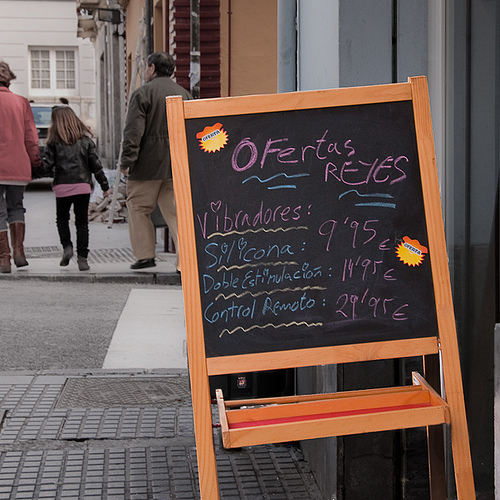 OFERTA
OFertas
REYES
Vibradores:
Silicona: 9'95€
OFERTA
Doble Estimulacion: 14'95€
Control Remoto: 29'95€